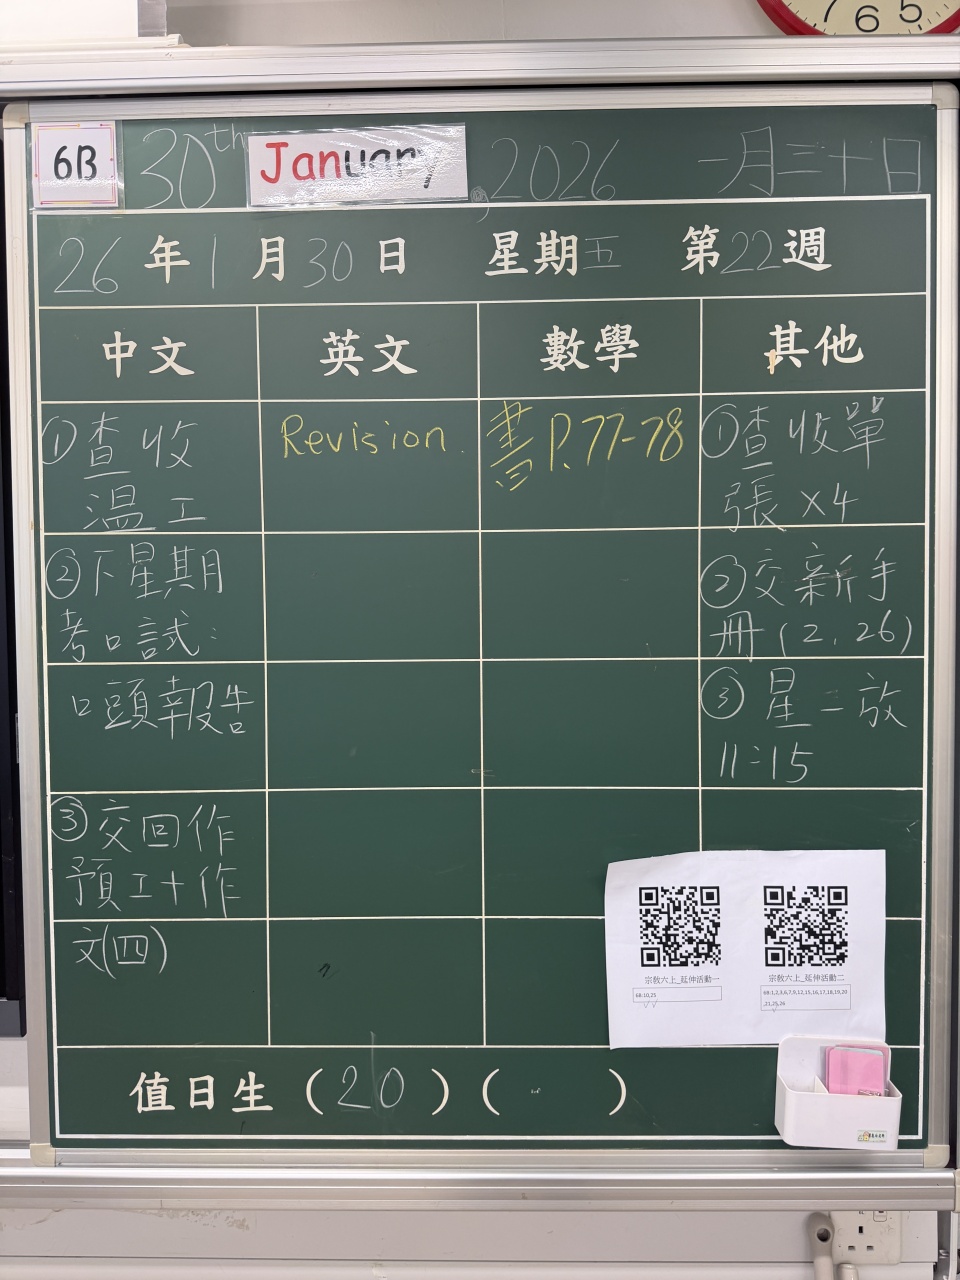 7 6 5
6B 30th January, 2026 一月三十日
26年1月30日 星期五 第22週
中文 英文 數學 其他
①查收
溫工
Revision.
書P.77-78
①查收單
張×4
②下星期
考口試:
②交新手
冊(2,26)
口頭報告
③星二放
11:15
③交回作
預工十作
文(四)
宗教六上_延伸活動一
6B:10,25
宗教六上_延伸活動二
6B:1,2,3,6,7,9,12,15,16,17,18,19,20
,21,25,26
值日生(20)( )